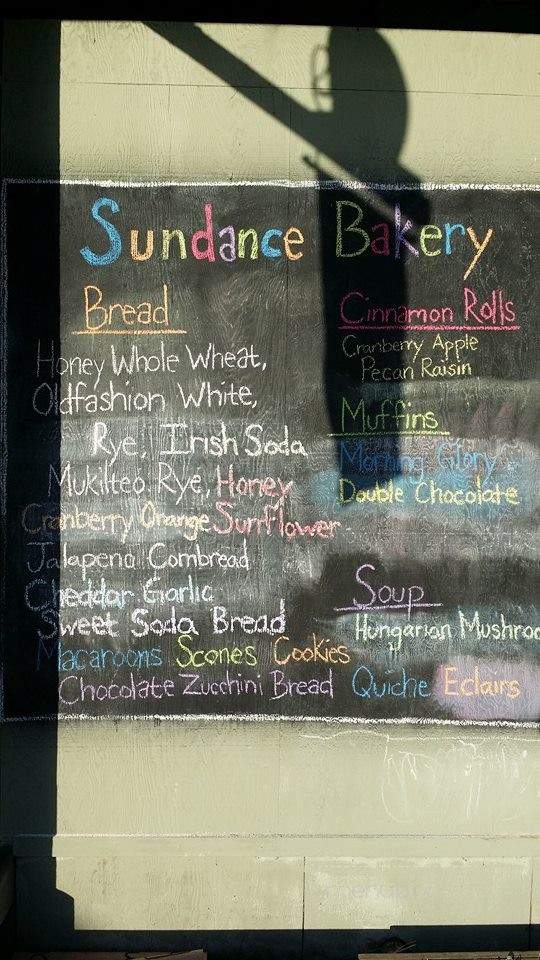 Sundance Bakery
Bread
Honey Whole Wheat,
Oldfashion White,
Rye, Irish Soda
Mukilteo Rye, Honey
Cranberry Orange Sunflower
Jalapeno Cornbread
Cheddar Garlic
Sweet Soda Bread
Macaroons Scones Cookies
Chocolate Zucchini Bread
Cinnamon Rolls
Cranberry Apple
Pecan Raisin
Muffins
Morning Glory
Double Chocolate
Soup
Hungarian Mushroo
Quiche Eclairs